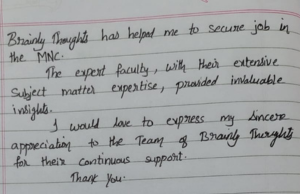 Brainly Thoughts has helped me to secure job in
the MNC.
The expert faculty, with their extensive
Subject matter expertise, provided invaluable
insights.
I would love to express my sincere
appreciation to the Team of Brainly Thoughts
for their continuous support.
Thank You.